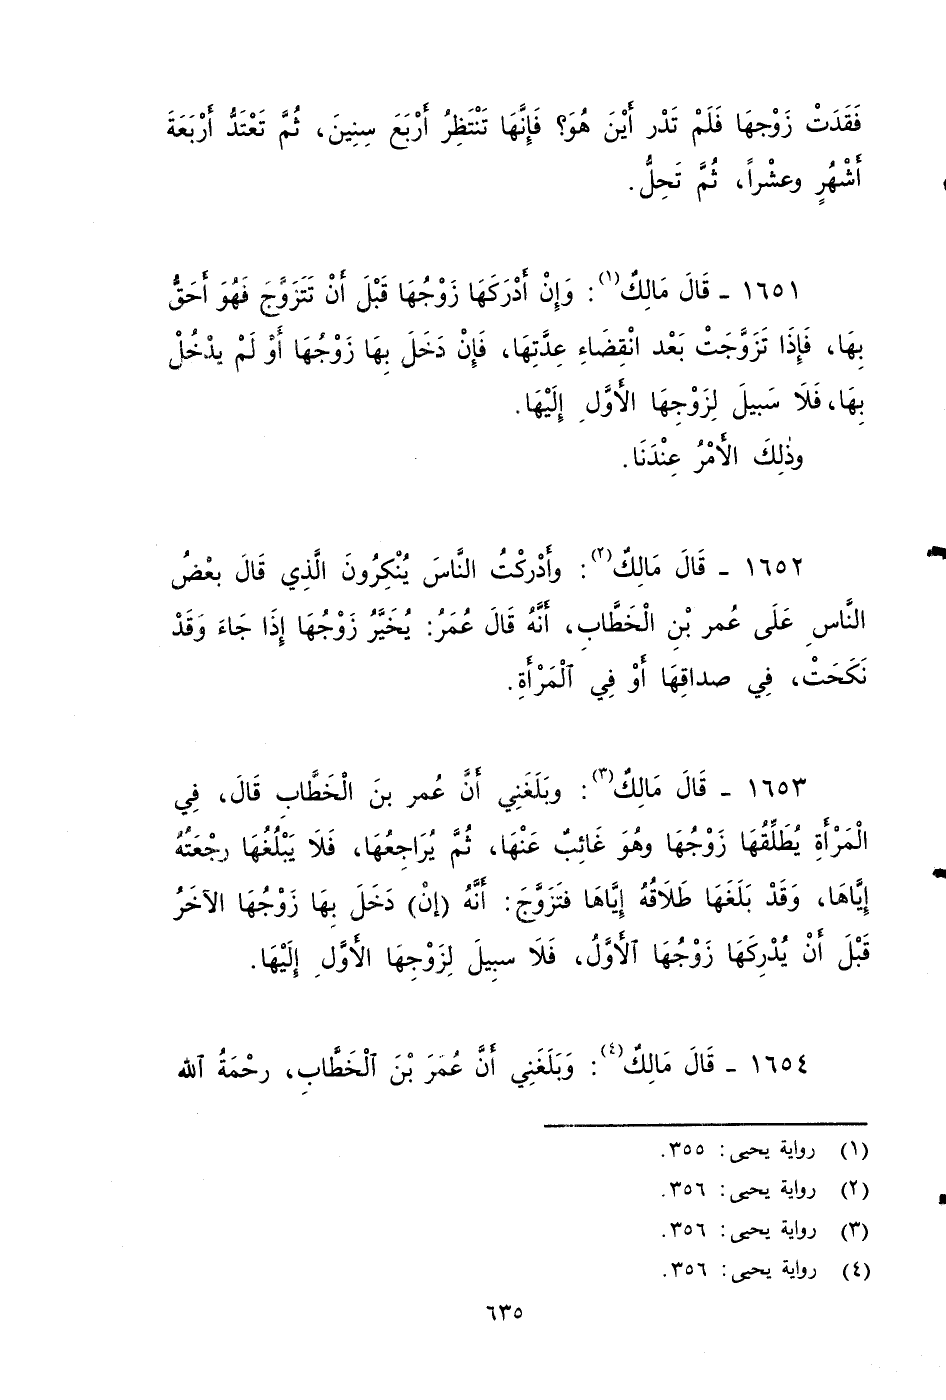 فَقَدَتْ زَوْجهَا فَلَمْ تَدْر أَيْنَ هُوَ؟ فَإِنَّهَا تَنْتَظِرُ أَرْبَعَ سِنِينَ، ثُمَّ تَعْتَدُّ أَرْبَعَةَ
أَشْهُرٍ وعشْراً، ثُمَّ تَحِلُّ.
١٦٥١ ـ قَالَ مَالِكٌ(١): وَإِنْ أَدْرَكَهَا زَوْجُهَا قَبْلَ أَنْ تَتَزَوَّجَ فَهُوَ أَحَقُّ
بِهَا، فَإِذَا تَزَوَّجَتْ بَعْد انْقِضَاءِ عِدَّتِهَا، فَإِنْ دَخَلَ بِهَا زَوْجُهَا أَوْ لَمْ يدْخُلْ
بِهَا، فَلَا سَبيلَ لِزَوْجِهَا الأَوَّلِ إِلَيْهَا.
وذٰلِكَ الأَمْرُ عِنْدَنَا.
١٦٥٢ ـ قَالَ مَالِكٌ(٢): وأَدْركْتُ النَّاسَ يُنْكِرُونَ الَّذِي قَالَ بعْضُ
النَّاسِ عَلَى عُمر بْنِ الْخَطَّابِ، أَنَّهُ قَالَ عُمَرُ: يُخَيَّرُ زَوْجُهَا إِذَا جَاءَ وَقَدْ
نَكَحَتْ، فِي صداقِهَا أَوْ فِي ٱلْمَرْأَةِ.
١٦٥٣ ـ قَالَ مَالِكٌ(٣): وبَلَغَنِي أَنَّ عُمر بنَ الْخَطَّابِ قَالَ، فِي
الْمَرْأَةِ يُطَلِّقُهَا زَوْجُهَا وهُوَ غَائِبٌ عَنْهَا، ثُمَّ يُرَاجِعُهَا، فَلَا يَبْلُغُهَا رجْعَتُهُ
إِيَّاهَا، وَقَدْ بَلَغَهَا طَلَاقُهُ إِيَّاهَا فَتَزَوَّجَ: أَنَّهُ (إِنْ) دَخَلَ بِهَا زَوْجُهَا الآخَرُ
قَبْلَ أَنْ يُدْرِكَهَا زَوْجُهَا ٱلأَوَّلُ، فَلَا سبِيلَ لِزَوْجِهَا الأَوَّلِ إِلَيْهَا.
١٦٥٤ ـ قَالَ مَالِكٌ(٤): وَبَلَغَنِي أَنَّ عُمَرَ بْنَ ٱلْخَطَّابِ، رحْمَةُ ٱلله
(١) رواية يحيى: ٣٥٥.
(٢) رواية يحيى: ٣٥٦.
(٣) رواية يحيى: ٣٥٦.
(٤) رواية يحيى: ٣٥٦.
٦٣٥